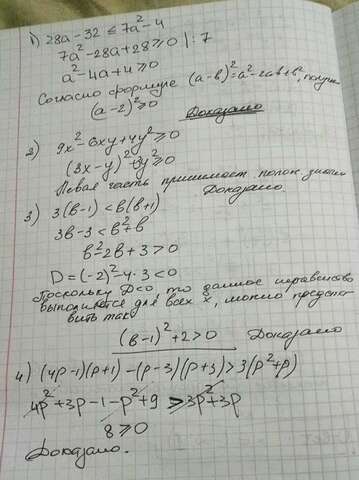 1) 28a - 32 ≤ 7a² - 4
7a² - 28a + 28 ≥ 0 | : 7
a² - 4a + 4 ≥ 0
Согласно формуле (a - b)² = a² - 2ab + b²,
(a - 2)² ≥ 0 Доказано
2) 9x² - 6xy + 4y² ≥ 0
(3x - y)² + 3y² ≥ 0
Левая часть принимает полож.
Доказано.
3) 3(b-1) < b(b+1)
3b - 3 < b² + b
b² - 2b + 3 > 0
D = (-2)² - 4 · 3 < 0
Поскольку D < 0, то данное неравенство
выполняется для всех x, можно предста-
вить так
(b-1)² + 2 > 0 Доказано
4) (4p-1)(p+1) - (p-3)(p+3) > 3(p²+p)
4p² + 3p - 1 - p² + 9 > 3p² + 3p
8 ≥ 0
Доказано.